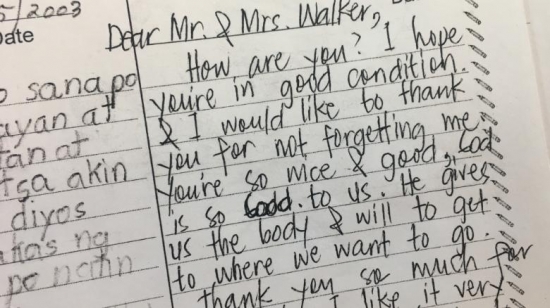 5/2003
Date
sanapo
ayan at
tan at
tsa akin
diyos
ng
po
Dear Mr. & Mrs. Walker,
How are you? I hope
you're in good condition.
& I would like to thank
you for not forgetting me.
You're so nice & good, God
is so Good. to us. He gives
us the body & will to get
to where we want to go.
thank you so much for
I like it very